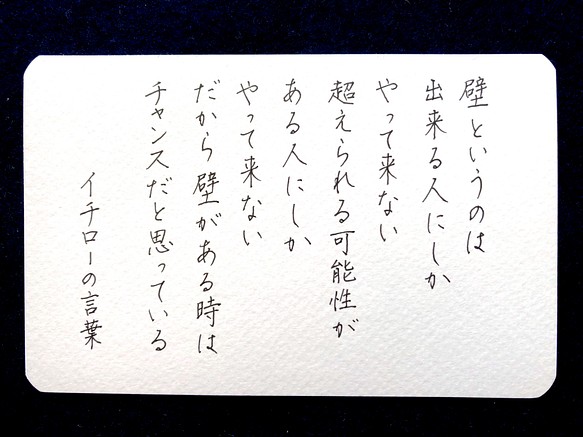 壁というのは
出来る人にしか
やって来ない
超えられる可能性が
ある人にしか
やって来ない
だから壁がある時は
チャンスだと思っている
イチローの言葉